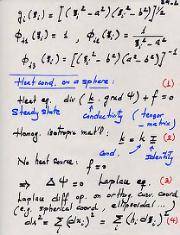 g_i(ξ_i) = [(ξ_i² - a²)(ξ_i² - b²)]^{1/2}
Φ_{i1} = 1 , Φ_{i2} = 1 / (ξ_i² - a²) ,
Φ_{i3} = [(ξ_i² - b²)(a² - b²)]^{-1}
Heat cond. on a sphere: (1)
Heat eq. div (k · grad T) + f = 0
Steady state conductivity (tensor - matrix)
Homog. isotropic mat'l: k = k I (2)
cond. identity
No heat source: f = 0
⇒ Δ Ψ = 0 Laplace eq. (3)
Laplace diff. op. in orthog. curv. coord
(e.g. spherical coord, ellipsoidal ...)
ds² = Σ_i (dx_i)² = Σ_i (h_i dξ_i)² (4)